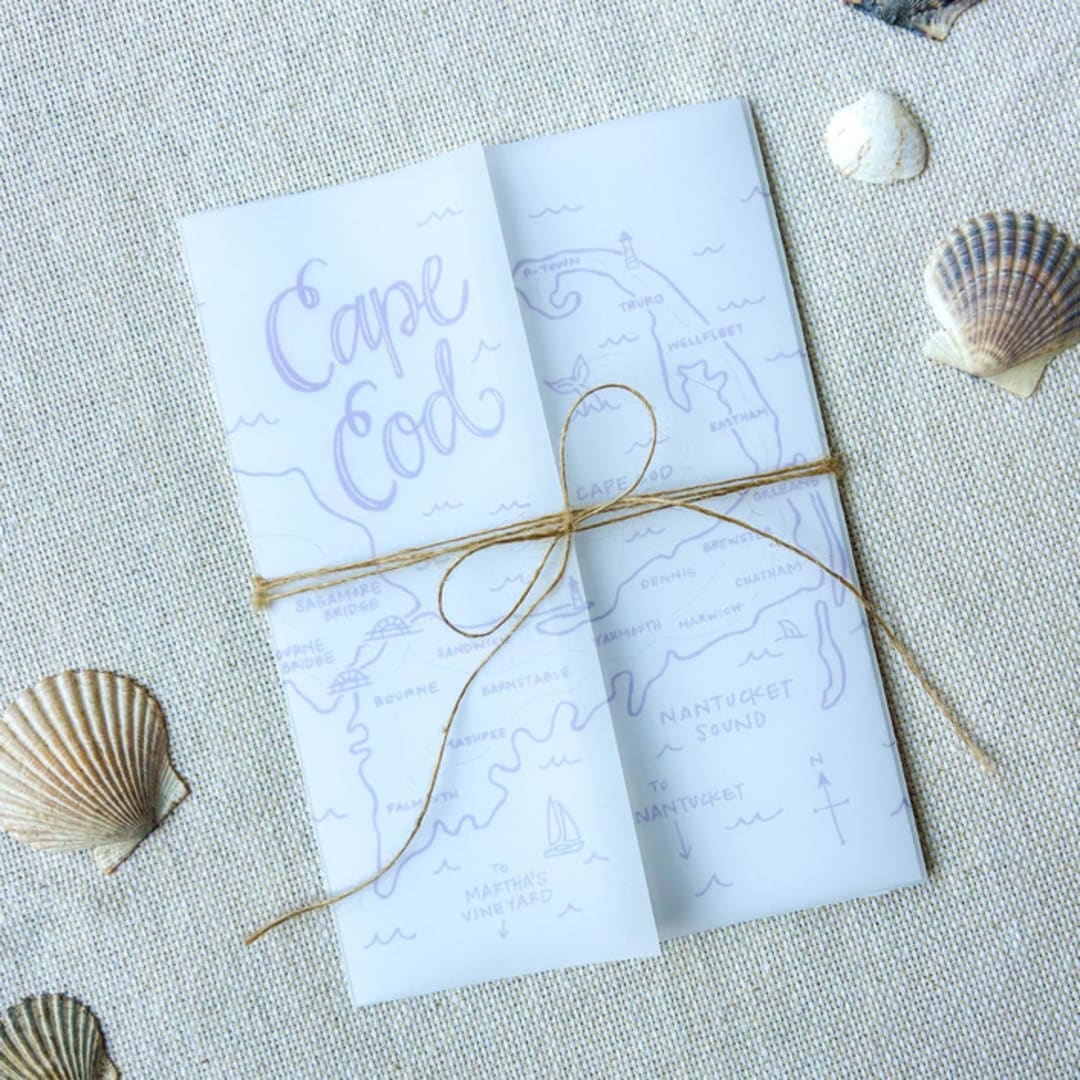 Cape
Cod
P-TOWN
TRURO
WELLFLEET
EASTHAM
CAPE COD
ORLEANS
BREWSTER
DENNIS
CHATHAM
SAGAMORE
BRIDGE
BOURNE
BRIDGE
SANDWICH
YARMOUTH
HARWICH
BOURNE
BARNSTABLE
MASHPEE
NANTUCKET
SOUND
FALMOUTH
TO
NANTUCKET
N
TO
MARTHA'S
VINEYARD